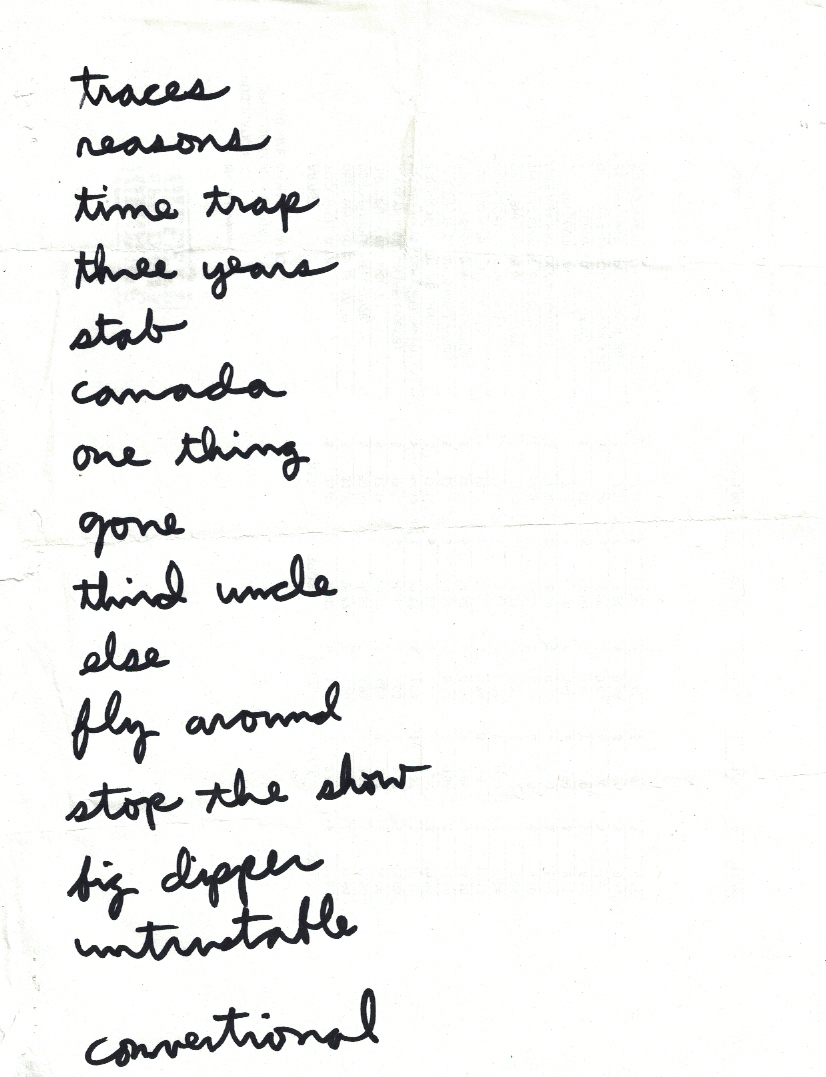 traces
reasons
time trap
three years
stab
canada
one thing
gone
third uncle
else
fly around
stop the show
big dipper
untrustable
conventional